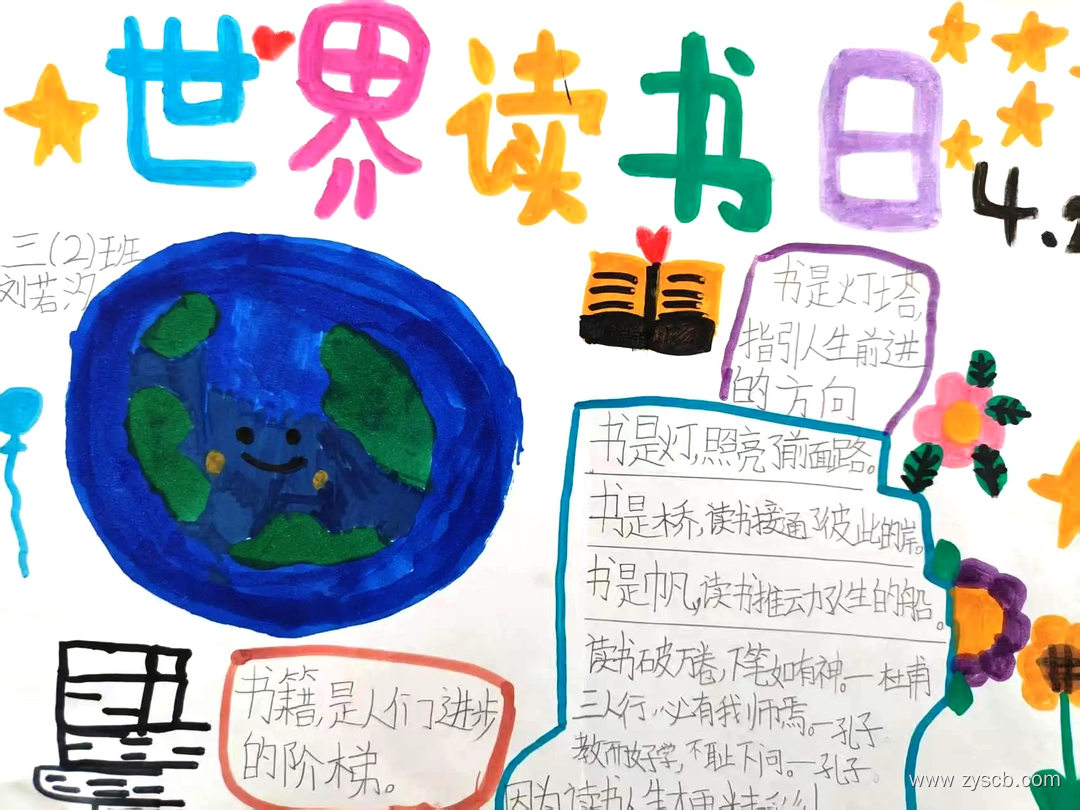 世界读书日
4.2
三(2)班
刘若汐
书是灯塔,
指引人生前进
的方向
书是灯,照亮了前面路。
书是桥,读书接通了彼此的岸。
书是帆,读书推动了人生的船。
读书破万卷,下笔如有神。—杜甫
三人行,必有我师焉。—孔子
敏而好学,不耻下问。—孔子
因为读书人生才更
书籍,是人们了进步
的阶梯。
www.zyscb.com